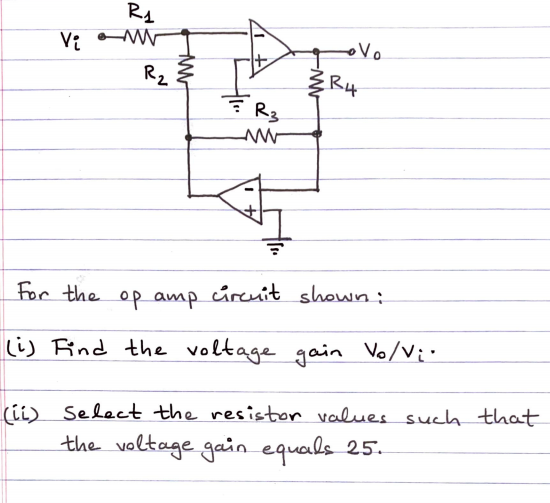 R1
Vi
Vo
R2
R4
R3
-
+
-
+
For the op amp circuit shown:
(i) Find the voltage gain Vo/Vi.
(ii) Select the resistor values such that
the voltage gain equals 25.